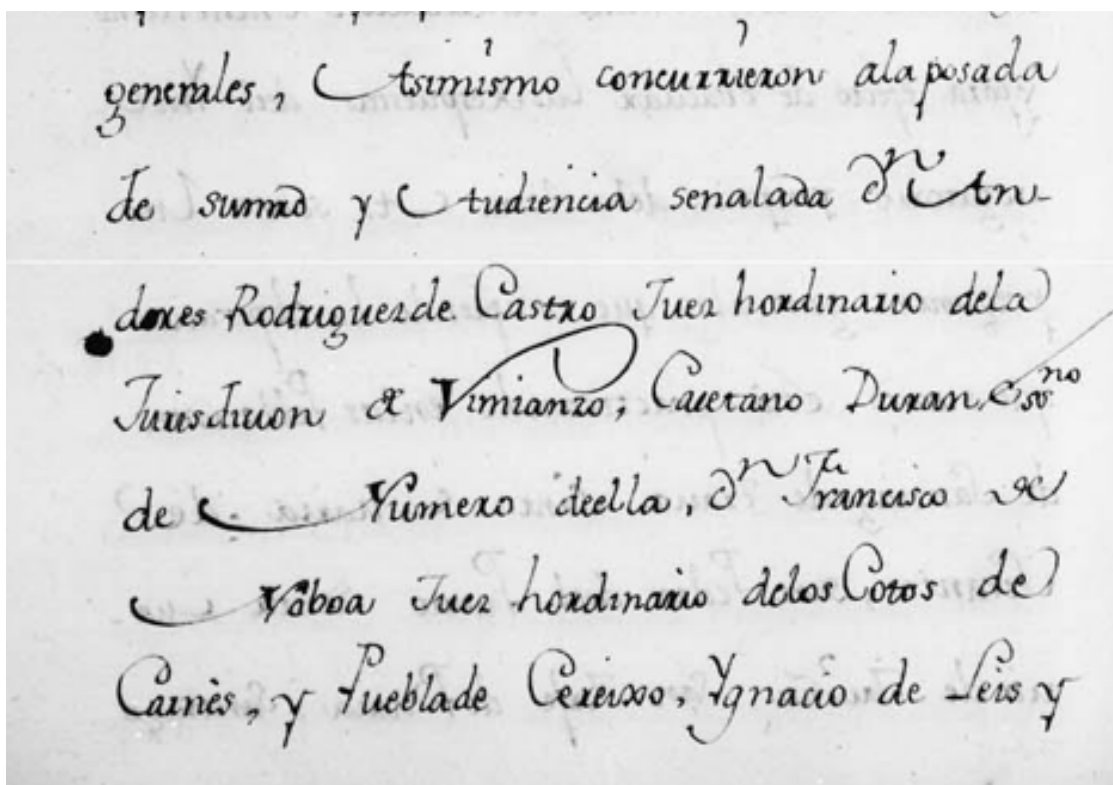 generales, Asimismo concurrieron ala posada
de sumrd y Audiencia señalada Dn An-
dores Rodriguez de Castro Juez hordinario dela
Jurisdicion de Vimianzo, Caietano Duran, Essno
de Numero deella, Dn Francisco de
Noboa Juez hordinario delos Cotos de
Carnès, y Pueblade Cereixo, Ygnacio de Leis y